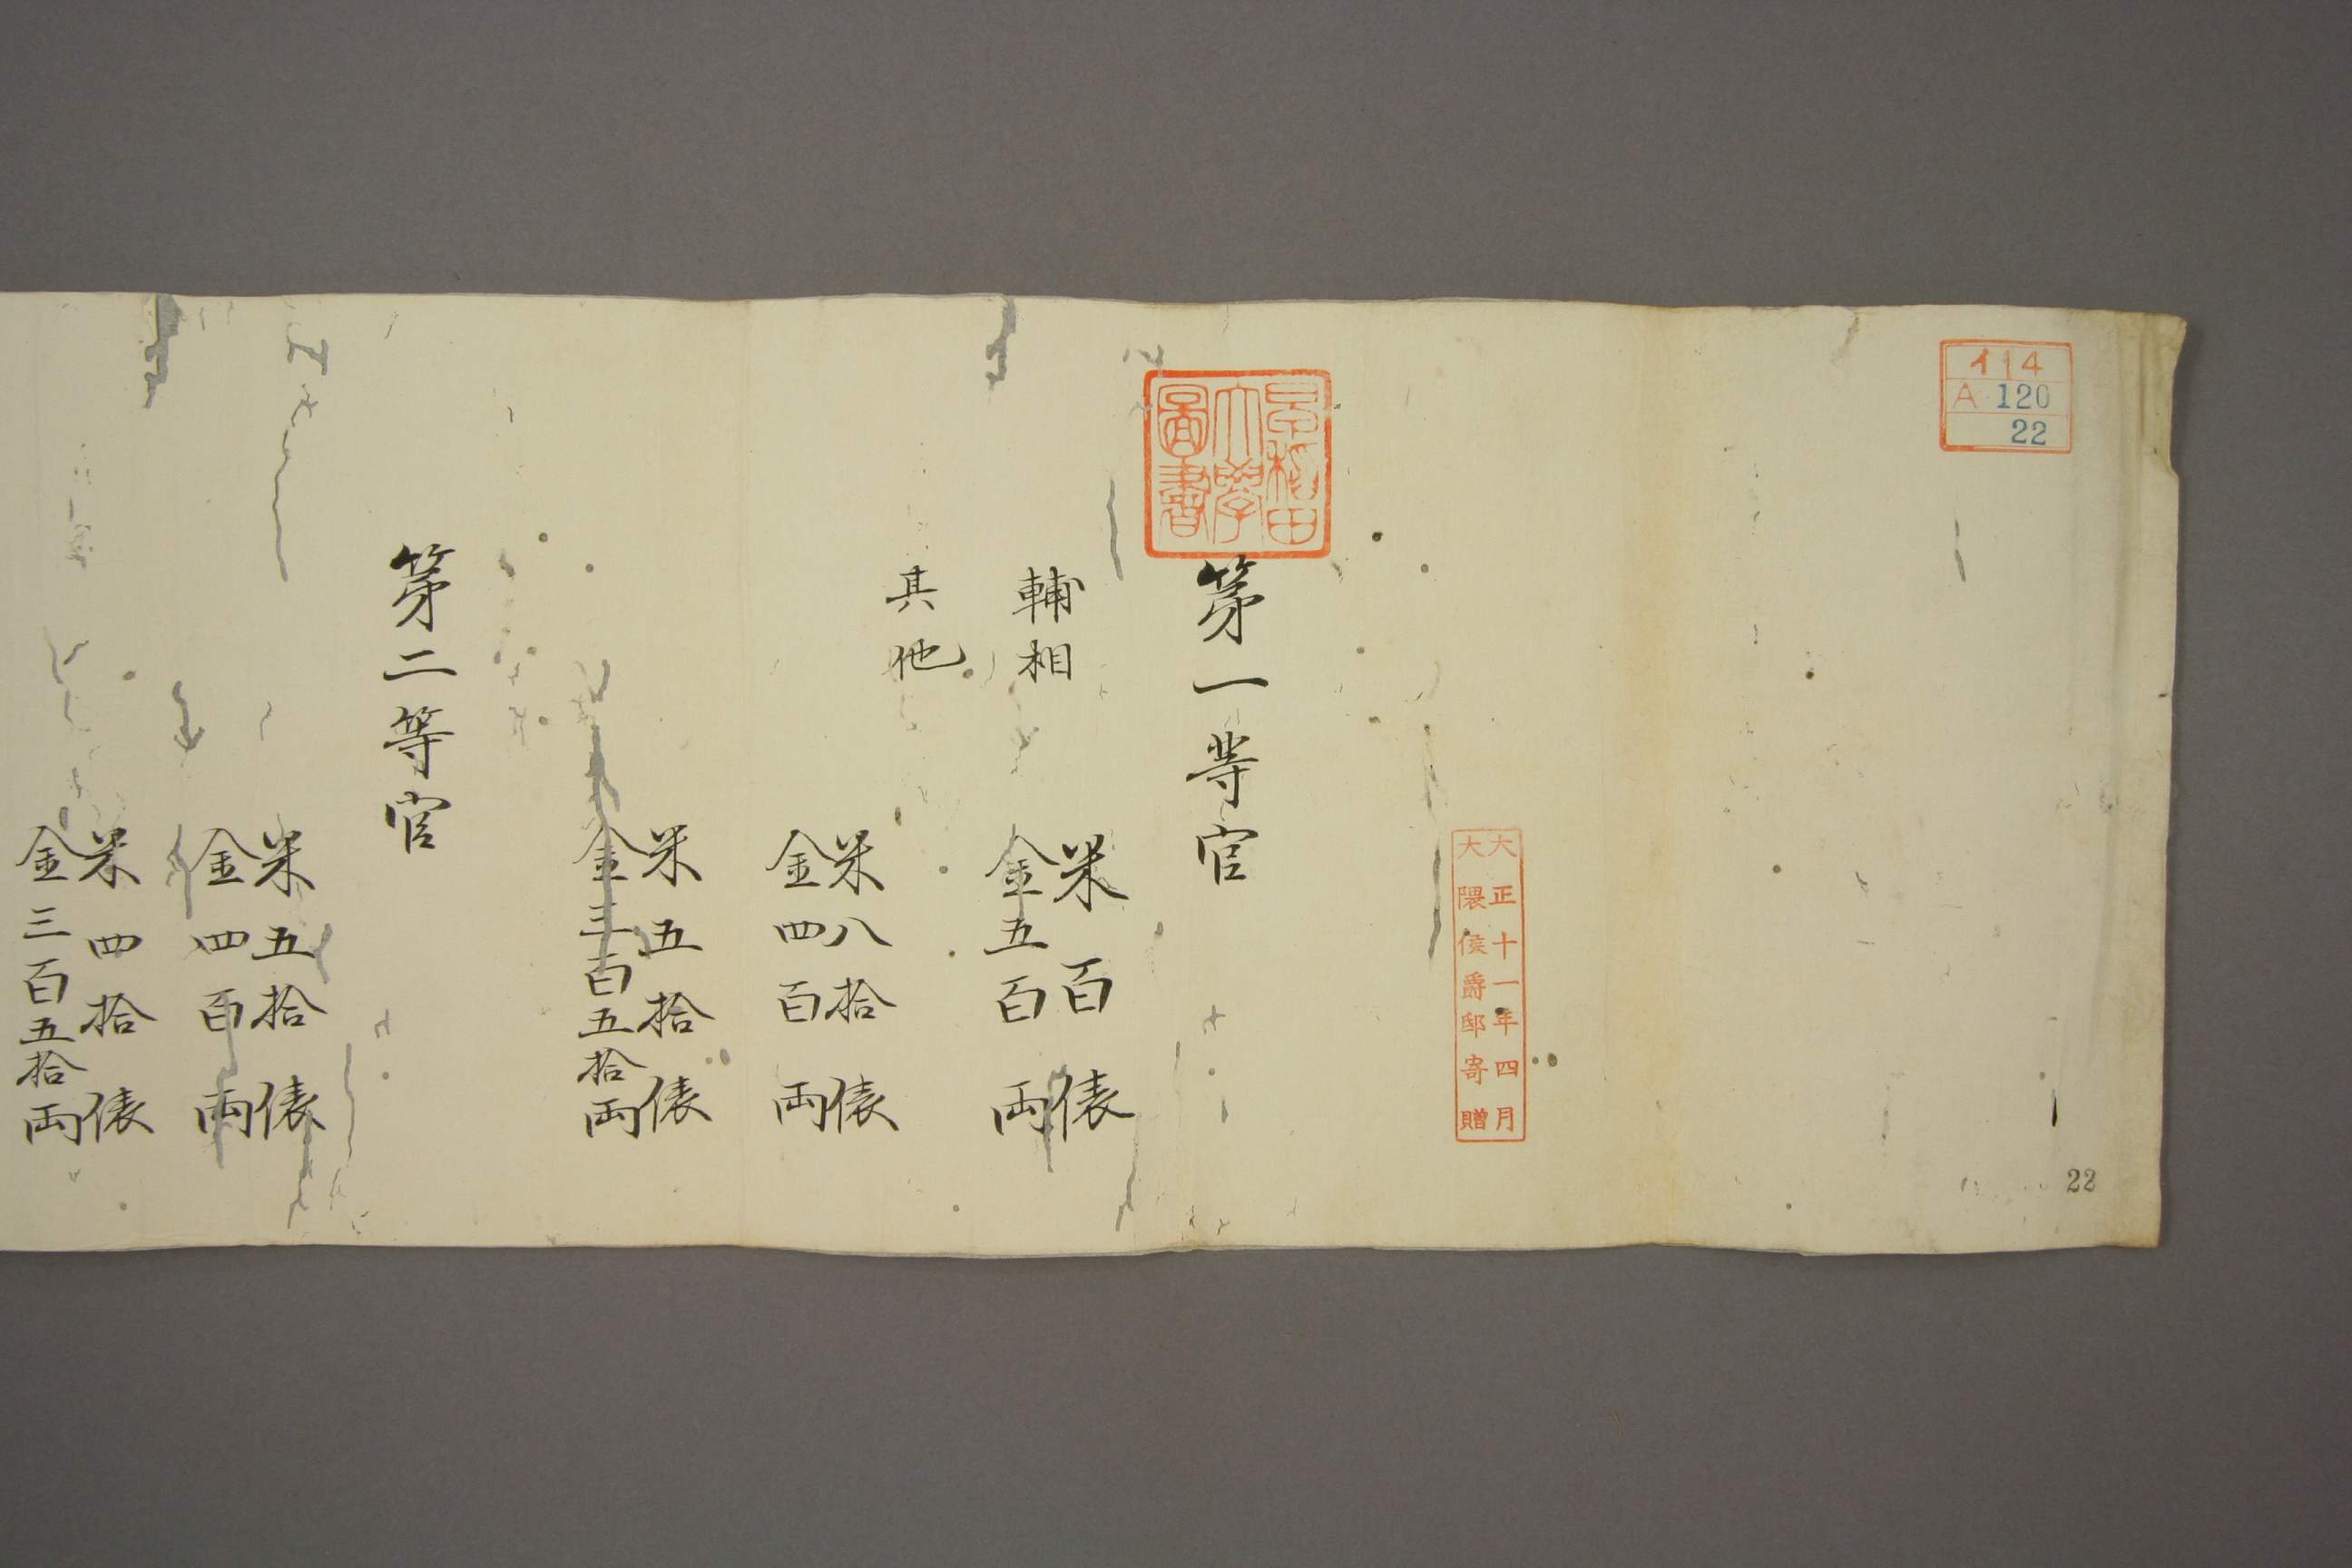 イ14
A 120
22
22
大正十一年四月
大隈侯爵邸寄贈
早稲田
大學
圖書
第一等官
輔相
米百俵
金五百両
其他
米八拾俵
金四百両
米五拾俵
金三百五拾両
第二等官
米五拾俵
金四百両
米四拾俵
金三百五拾両